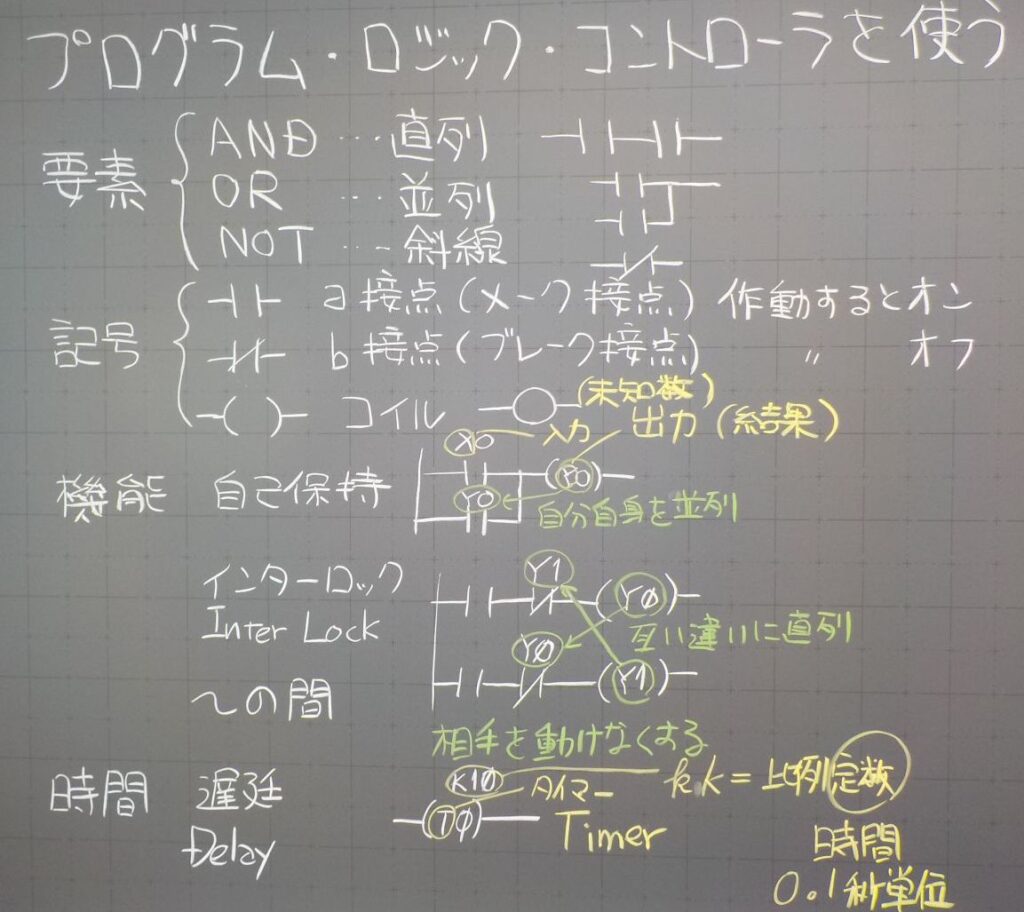 プログラム・ロジック・コントローラを使う
要素
AND … 直列
OR … 並列
NOT … 斜線
記号
a接点(メーク接点) 作動するとオン
b接点(ブレーク接点) 〃 オフ
コイル
(未知数)
X0 入力 出力(結果)
機能 自己保持
Y0
Y0
自分自身を並列
インターロック
Inter Lock
Y1
Y0
互い違いに直列
Y0
Y1
〜の間
相手を動けなくする
時間 遅延
Delay
K10
T0
タイマー
Timer
k k = 比例定数
時間
0.1秒単位